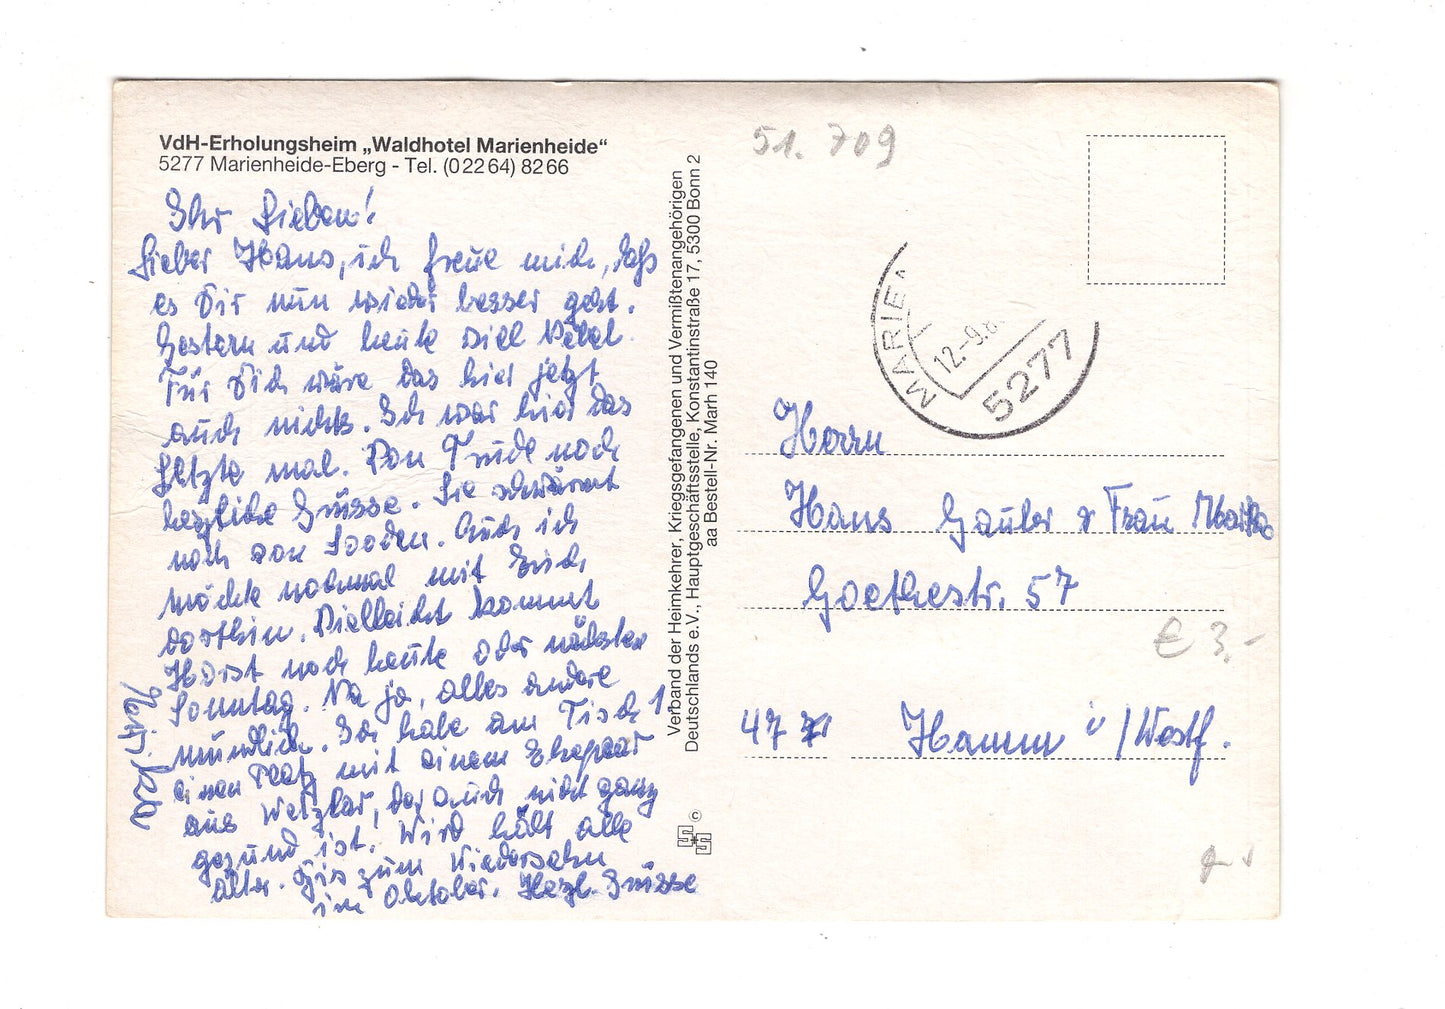 VdH-Erholungsheim „Waldhotel Marienheide“
5277 Marienheide-Eberg - Tel. (0 22 64) 82 66
Ihr Lieben!
Lieber Hans, ich freue mich, daß
es Dir nun wieder besser geht.
Gestern und heute viel Nebel.
Für Dich wäre das hier jetzt
auch nichts. Ich war hier das
letzte mal. Von Trude noch
herzliche Grüsse. Sie schwärmt
noch von Sooden. Auch ich
möchte nochmal mit Euch
dorthin. Vielleicht kommt
Horst noch heute oder nächsten
Sonntag. Na ja, alles andere
mündlich. Ich habe am Tisch 1
einen Platz mit einem Ehepaar
aus Wetzlar, der auch nicht ganz
gesund ist. Wird halt alle
älter. Bis zum Wiedersehn
im Oktober. Herzl. Grüsse
Verband der Heimkehrer, Kriegsgefangenen und Vermißtenangehörigen
Deutschlands e.V., Hauptgeschäftsstelle, Konstantinstraße 17, 5300 Bonn 2
aa Bestell-Nr. Marh 140
©
S+S
51. 709
MARIE
12.-9.8
5277
Herrn
Hans Gauler & Frau
Goethestr. 57
€ 3,-
47 Hamm i/Westf.